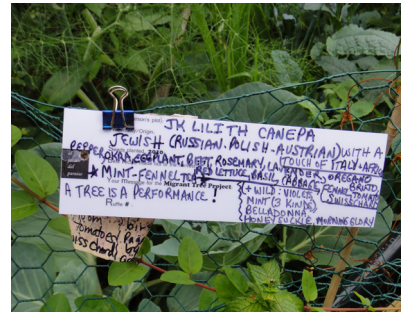 JK LILITH CANEPA
JEWISH (RUSSIAN-POLISH-AUSTRIAN) WITH A
TOUCH OF ITALY-AFRICA
PEPPER, OKRA, EGGPLANT, BEET, ROSEMARY, LAVENDER, OREGANO
RED LETTUCE, BASIL, CABBAGE, FENNEL, TOMATO
SWISS CHARD
★ MINT-FENNEL TEA ★
Your Message for the Migrant Tree Project
A TREE IS A PERFORMANCE!
+ WILD: VIOLET
MINT (3 KINDS)
BELLADONNA
HONEYSUCKLE, MORNING GLORY
del
Tomatoes